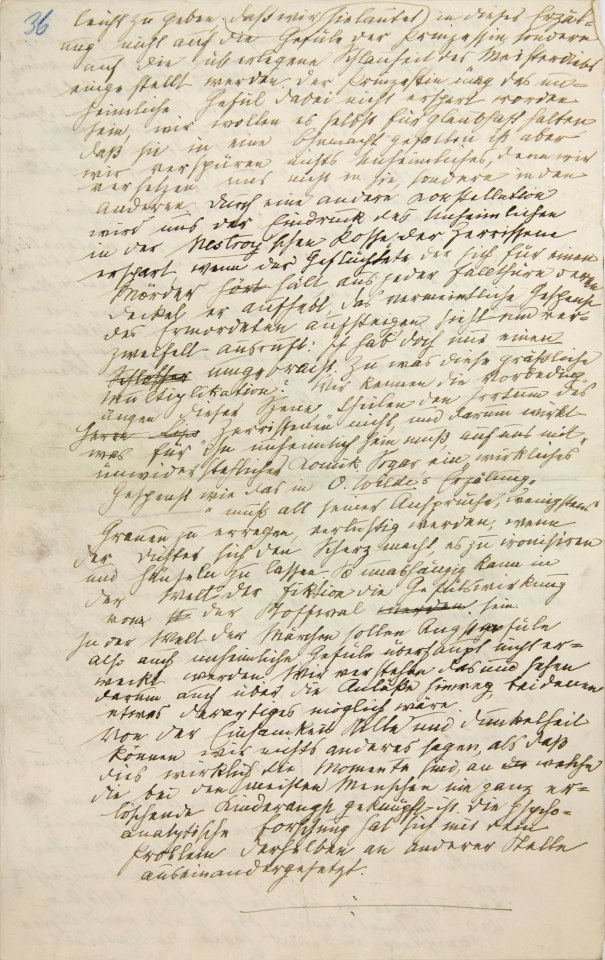 36
leicht zu geben, daß wir (sie lautet) in dieser Erzäl-
ung nicht auf die Gefüle der Prinzessin sondern
auf die überlegene Schlauheit des Meisterdiebs
eingestellt werden. Der Prinzessin mag das un-
heimliche Gefül dabei nicht erspart worden
sein, wir wollen es selbst für glaubhaft halten
daß sie in eine Ohnmacht gefallen ist aber
wir verspüren nichts Unheimliches, denn wir
versetzen uns nicht in sie, sondern in den
anderen. Durch eine andere Konstellation
wird uns der Eindruck des Unheimlichen
in der Nestroy'schen Posse der Zerrissene
erspart, wenn der Geflüchtete der sich für einen
Mörder hält aus jeder Fallthüre deren
Deckel er aufhebt das vermeintliche Gespenst
des Ermordeten aufsteigen sieht und ver-
zweifelt ausruft: Ich hab doch nur einen
Schlosser umgebracht. Zu was diese gräßliche
Multiplikation? Wir kennen die Vorbeding-
ungen dieser Szene, theilen den Irrtum des
Herrn Lips „Zerrissenen" nicht, und darum wirkt
was für ihn unheimlich sein muß auf uns mit
unwiderstehlicher Komik. Sogar ein „wirkliches"
Gespenst wie das in O. Wilde's Erzälung
" muß all seiner Ansprüche, wenigstens
Grauen zu erregen, verlustig werden, wenn
der Dichter sich den Scherz macht, es zu ironisiren
und hänseln zu lassen. So unabhängig kann in
der Welt der Fiktion die Gefülswirkung
von der Stoffwal werden sein.
In der Welt der Märchen sollen Angstgefüle
also auch unheimliche Gefüle überhaupt nicht er-
weckt werden. Wir verstehen das und sehen
darum auch über die Anläße hinweg, bei denen
etwas derartiges möglich wäre.
Von der Einsamkeit Stille und Dunkelheit
können wir nichts anderes sagen, als daß
dies wirklich die Momente sind, an welche
die bei den meisten Menschen nie ganz er-
löschende Kinderangst geknüpft ist. Die Psycho-
analytische Forschung hat sich mit dem
Problem derselben an anderer Stelle
auseinandergesetzt.